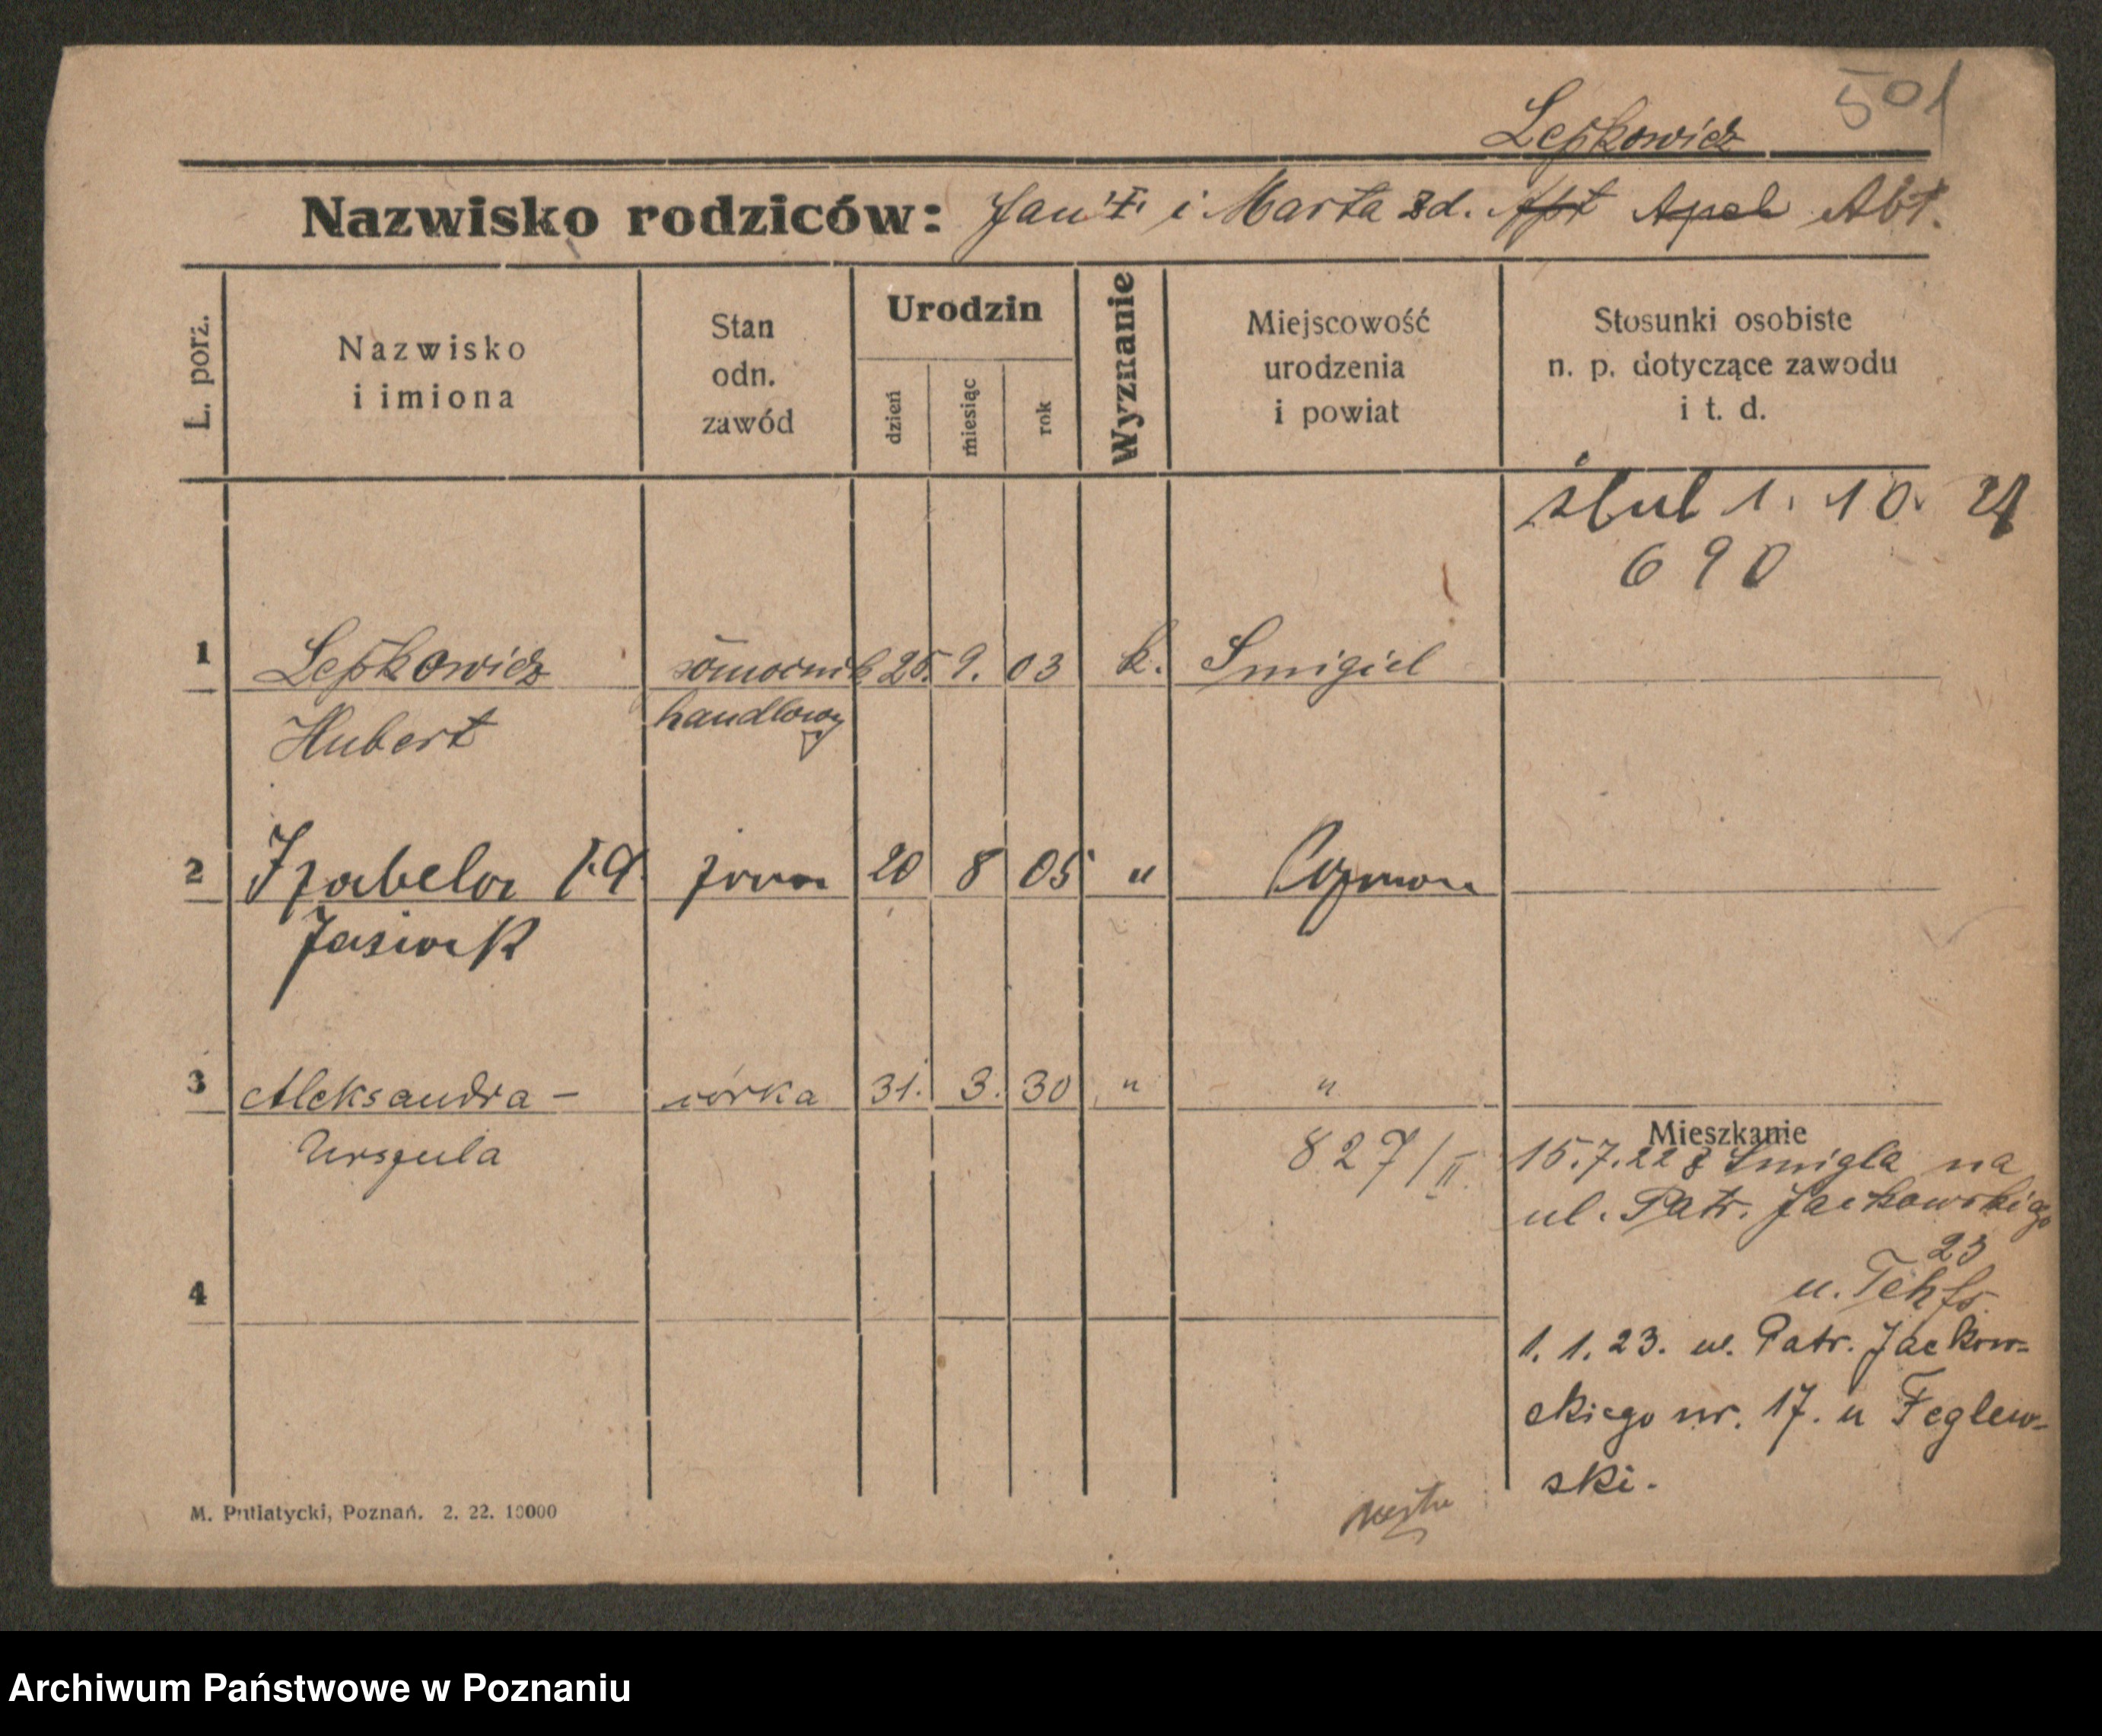 501
Lepkowicz
Nazwisko rodziców: Jan i Marta zd. Apt Apel Abt.
L. porz.
Nazwisko
i imiona
Stan
odn.
zawód
Urodzin
dzień
miesiąc
rok
Wyznanie
Miejscowość
urodzenia
i powiat
Stosunki osobiste
n. p. dotyczące zawodu
i t. d.
ślub 1. 10.
690
1 Lepkowicz 25. 9. 03 k. Smigiel
Hubert handlowy
2 Izabela żona 20 8 05 "
Jasiak
3 Aleksandra - córka 31. 3. 30 " "
Urszula
827/II.
Mieszkanie
15.7.22 z Smigla na
ul. Patr. Jackowskiego
23
u.
1. 1. 23. ul. Patr. Jackow-
skiego nr. 17. u Feglew-
ski.
4
M. Putiatycki, Poznań. 2. 22. 10000
Archiwum Państwowe w Poznaniu